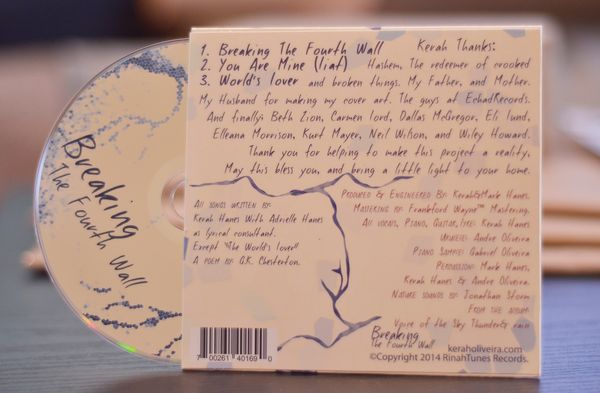 Breaking
The Fourth Wall
1. Breaking The Fourth Wall
2. You Are Mine (liaf)
3. World's lover
Kerah Thanks:
Hashem, The redeemer of crooked
and broken things. My Father, and Mother.
My Husband for making my cover art. The guys at EchadRecords.
And finally: Beth Zion, Carmen lord, Dallas McGregor, Eli lund,
Elleana Morrison, Kurt Mayer, Neil Wilson, and Wiley Howard.
Thank you for helping to make this project a reality,
May this bless you, and bring a little light to your home.
All songs written by:
Kerah Hanes With Adrielle Hanes
as lyrical consultant.
Except "The World's lover"
A poem by: G.K. Chesterton.
Produced & Engineered By: Kerah&Mark Hanes.
Mastering by: Frankford Wayne™ Mastering.
All vocals, Piano, Guitar, : Kerah Hanes
: Andre Oliveira
Piano : Gabriel Oliveira
Percussion: Mark Hanes,
Kerah Hanes & Andre Oliveira.
Nature sounds by: Jonathan Storm
From the album:
Voice of the Sky Thunder& rain
7 00261 40169 0
Breaking
The Fourth Wall
keraholiveira.com
©Copyright 2014 RinahTunes Records.